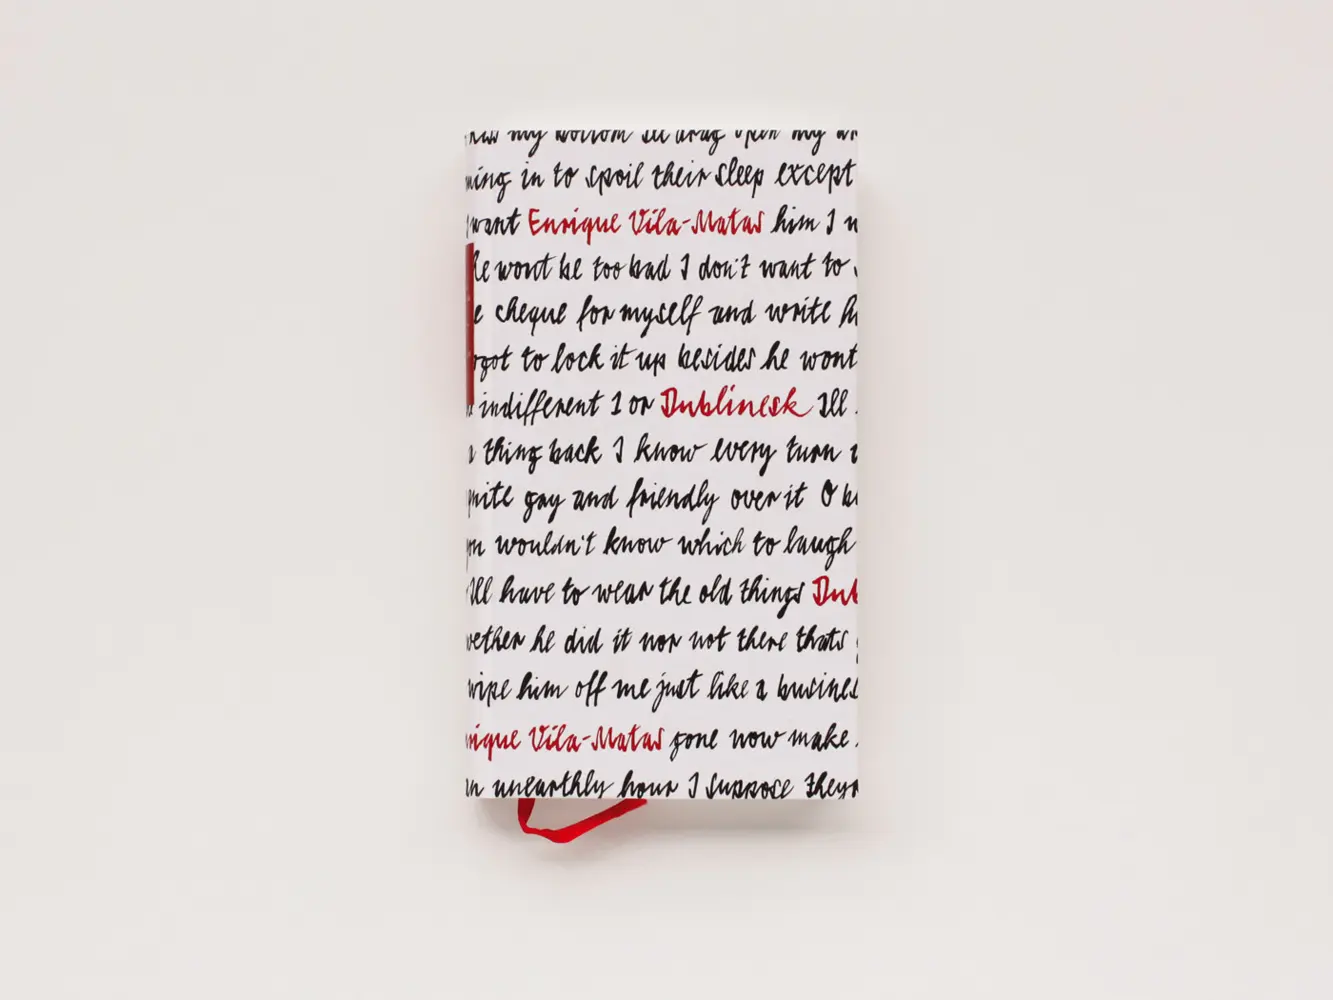 my bottom Ill drag open my
ming in to spoil their sleep except
want Enrique Vila-Matas him I w
he wont be too bad I don't want to s
e cheque for myself and write h
rgot to lock it up besides he wont
indifferent 1 or Dublinesk Ill
a thing back I know every turn
quite gay and friendly over it O be
you wouldn't know which to laugh
Ill have to wear the old things Dub
wether he did it nor not there thats
wipe him off me just like a busines
nrique Vila-Matas gone now make
an unearthly hour I suppose theyr